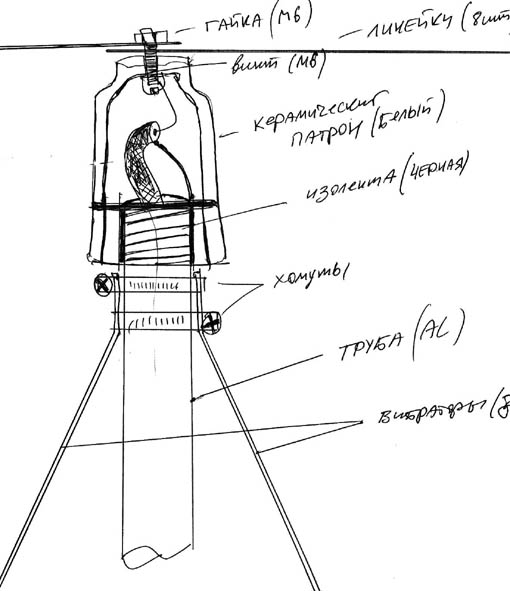 ГАЙКА (М6)
ЛИНЕЙКИ (8шт
винт (М6)
керамический
ПАТРОН (Белый)
изолента (ЧЕРНАЯ)
хомуты
ТРУБА (AL)
Вибраторы (8